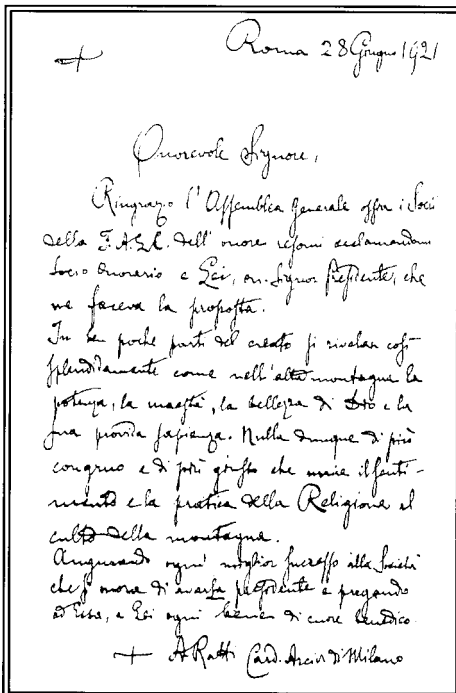 Roma 28 Giugno 1921
Onorevole Signore,
Ringrazio l'Assemblea Generale i Soci
della dell'onore
Socio Onorario e Lei, on. Signor Presidente, che
ne faceva la proposta.
In ben poche parti del creato si rivelan così
splendidamente come nell'alta montagna la
potenza, la maestà, la bellezza di Dio e la
sua provida sapienza. Nulla dunque di più
congruo e di più giusto che unire il senti-
mento e la pratica della Religione al
culto della montagna.
Augurando ogni miglior successo alla Società
che s' di e pregando
ad Essa, a Lei ogni bene di cuore benedico.
+ A Ratti Card. Arciv di Milano